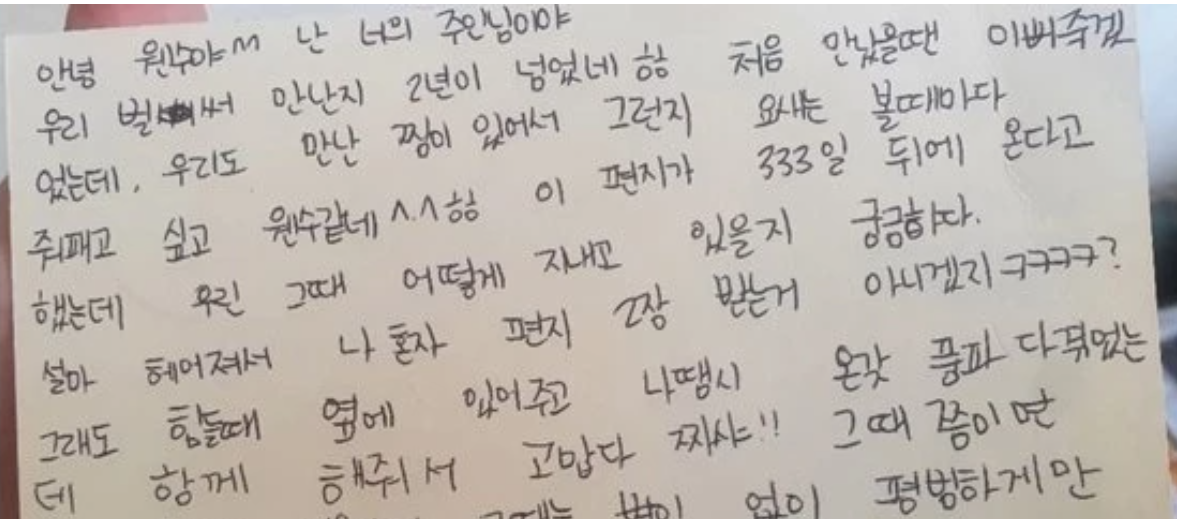 안녕 웬수야^^ 난 너의 주인님이야
우리 벌써 만난지 2년이 넘었네 핳 처음 만났을땐 이뻐죽겠
었는데, 우리도 만난 찡이 있어서 그런지 요새는 볼때마다
줘패고 싶고 웬수같네^.^핳 이 편지가 333일 뒤에 온다고
했는데 우린 그때 어떻게 지내고 있을지 궁금하다.
설마 헤어져서 나 혼자 편지 2장 받는거 아니겠지ㅋㅋㅋㅋ?
그래도 힘들때 옆에 있어주고 나땜시 온갖 풍파 다겪었는
데 함께 해줘서 고맙다 짜샤!! 그때쯤이면
없이 평범하게만